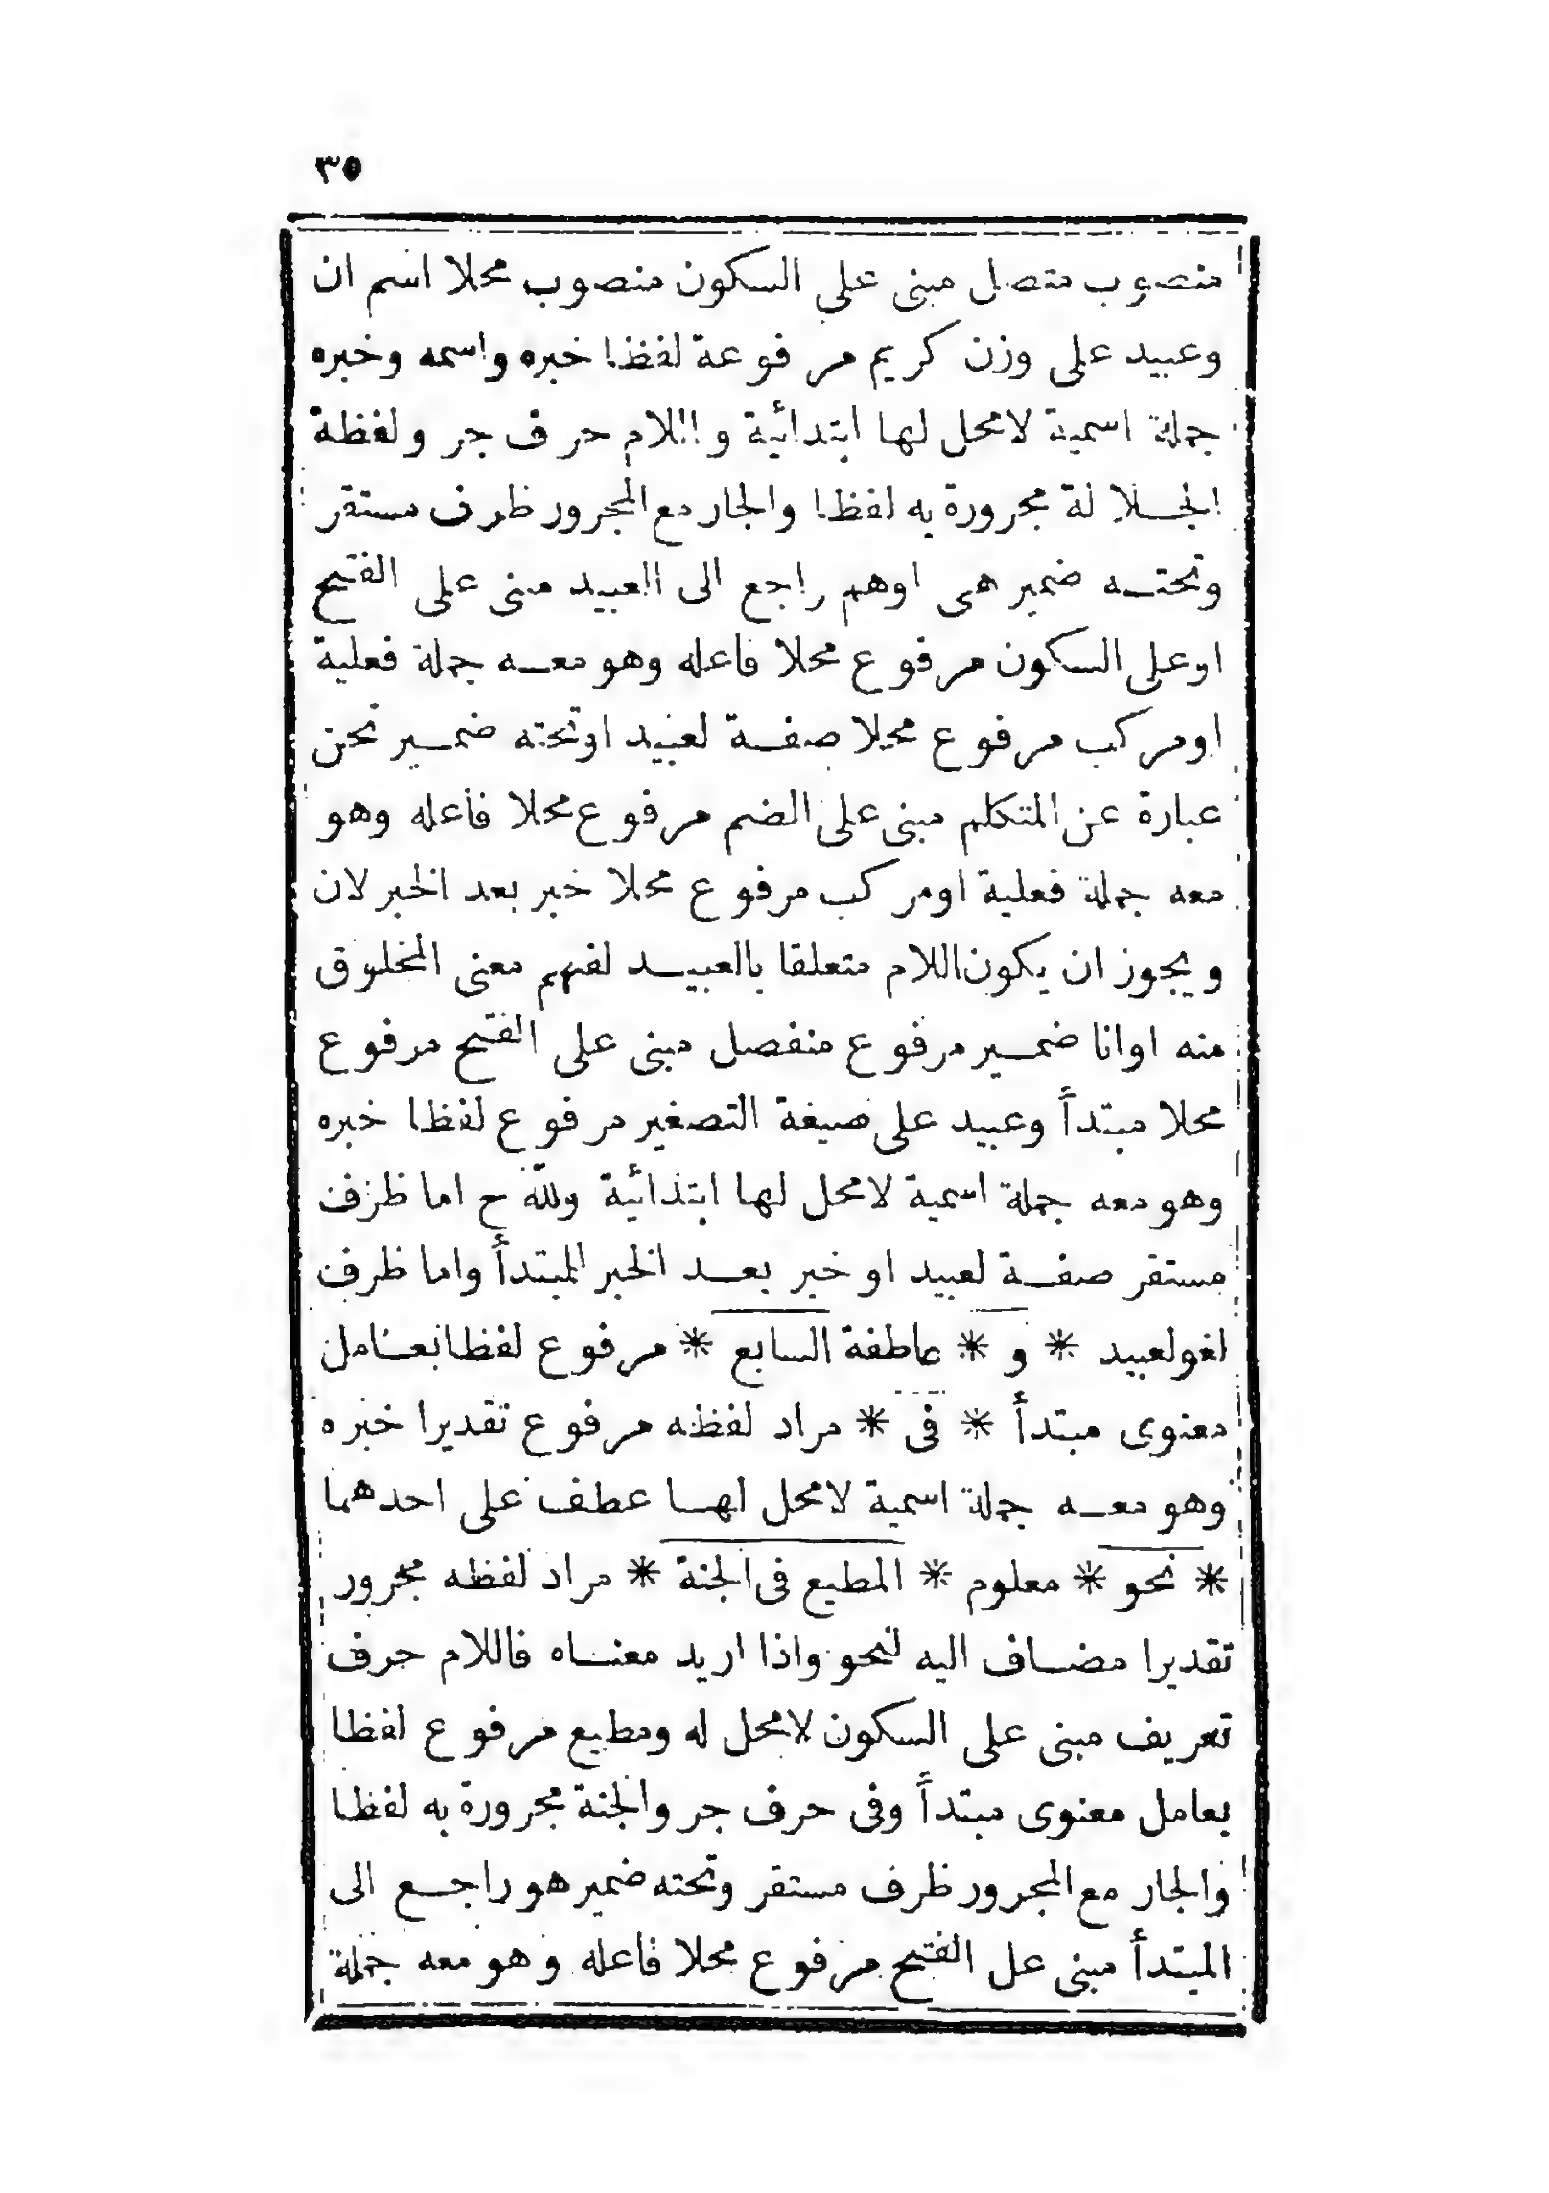 ٣٥
منصوب متصل مبنى على السكون منصوب محلا اسم ان
وعبيد على وزن كريم مرفوعة لفظا خبره واسمه وخبره
جملة اسمية لامحل لها ابتدائية واللام حرف جر ولفظة
الجلالة مجرورة به لفظا والجار مع المجرور ظرف مستقر
وتحته ضمير هى اوهم راجع الى العبيد مبنى على الفتح
اوعلى السكون مرفوع محلا فاعله وهو معه جملة فعلية
اومركب مرفوع محلا صفة لعبيد اوتحته ضمير نحن
عبارة عن المتكلم مبنى على الضم مرفوع محلا فاعله وهو
معه جملة فعلية اومركب مرفوع محلا خبر بعد الخبر لان
ويجوز ان يكون اللام متعلقا بالعبيد لفهم معنى المخلوق
منه اوانا ضمير مرفوع منفصل مبنى على الفتح مرفوع
محلا مبتدأ وعبيد على صيغة التصغير مرفوع لفظا خبره
وهو معه جملة اسمية لامحل لها ابتدائية ولله ح اما ظرف
مستقر صفة لعبيد او خبر بعد الخبر المبتدأ واما ظرف
لغولعبيد * و * عاطفة السابع * مرفوع لفظا بعامل
معنوى مبتدأ * فى * مراد لفظه مرفوع تقديرا خبره
وهو معه جملة اسمية لامحل لها عطف على احدهما
* نحو * معلوم * المطيع فى الجنة * مراد لفظه مجرور
تقديرا مضاف اليه لنحو واذا اريد معناه فاللام حرف
تعريف مبنى على السكون لامحل له ومطيع مرفوع لفظا
بعامل معنوى مبتدأ وفى حرف جر والجنة مجرورة به لفظا
والجار مع المجرور ظرف مستقر وتحته ضمير هو راجع الى
المبتدأ مبنى عل الفتح مرفوع محلا فاعله وهو معه جملة